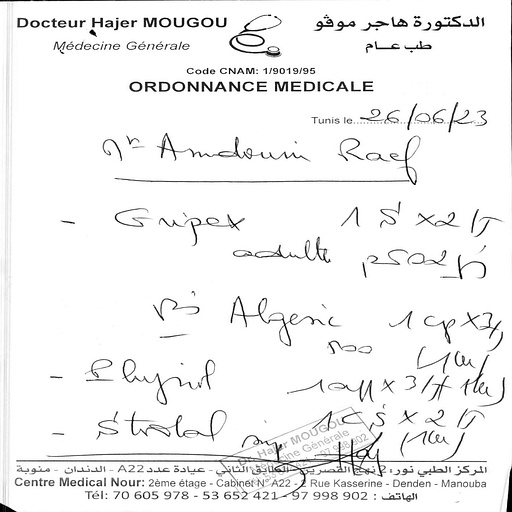 Docteur Hajer MOUGOU
الدكتورة هاجر موقو
Médecine Générale
طب عام
Code CNAM: 1/9019/95
ORDONNANCE MEDICALE
Tunis le 26/06/23
Mr Amdouni Raef
- Gripex 1 S x 2 /J
adulte
Algesic 1 cp x 3/J
500
- 1 app x 3/J
- x 2 /J
Dr Hajer MOUGOU
Médecine Générale
المركز الطبي نور: 2 نهج القصرين - الطابق الثاني - عيادة عدد A22 - الدندان - منوبة
Centre Medical Nour: 2ème étage - Cabinet N° A22 - 2 Rue Kasserine - Denden - Manouba
Tél: 70 605 978 - 53 652 421 - 97 998 902 : الهاتف